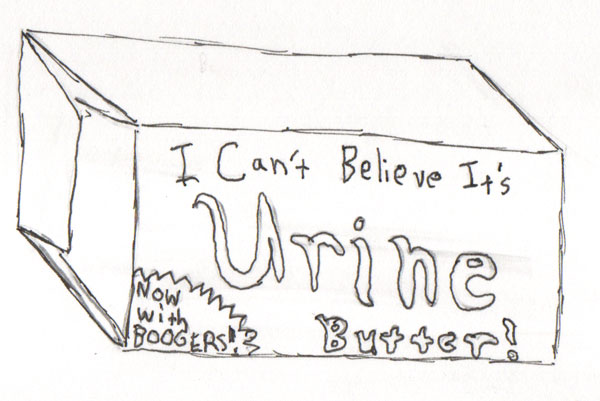 I Can't Believe It's
Urine
Butter!
Now
with
BOOGERS!